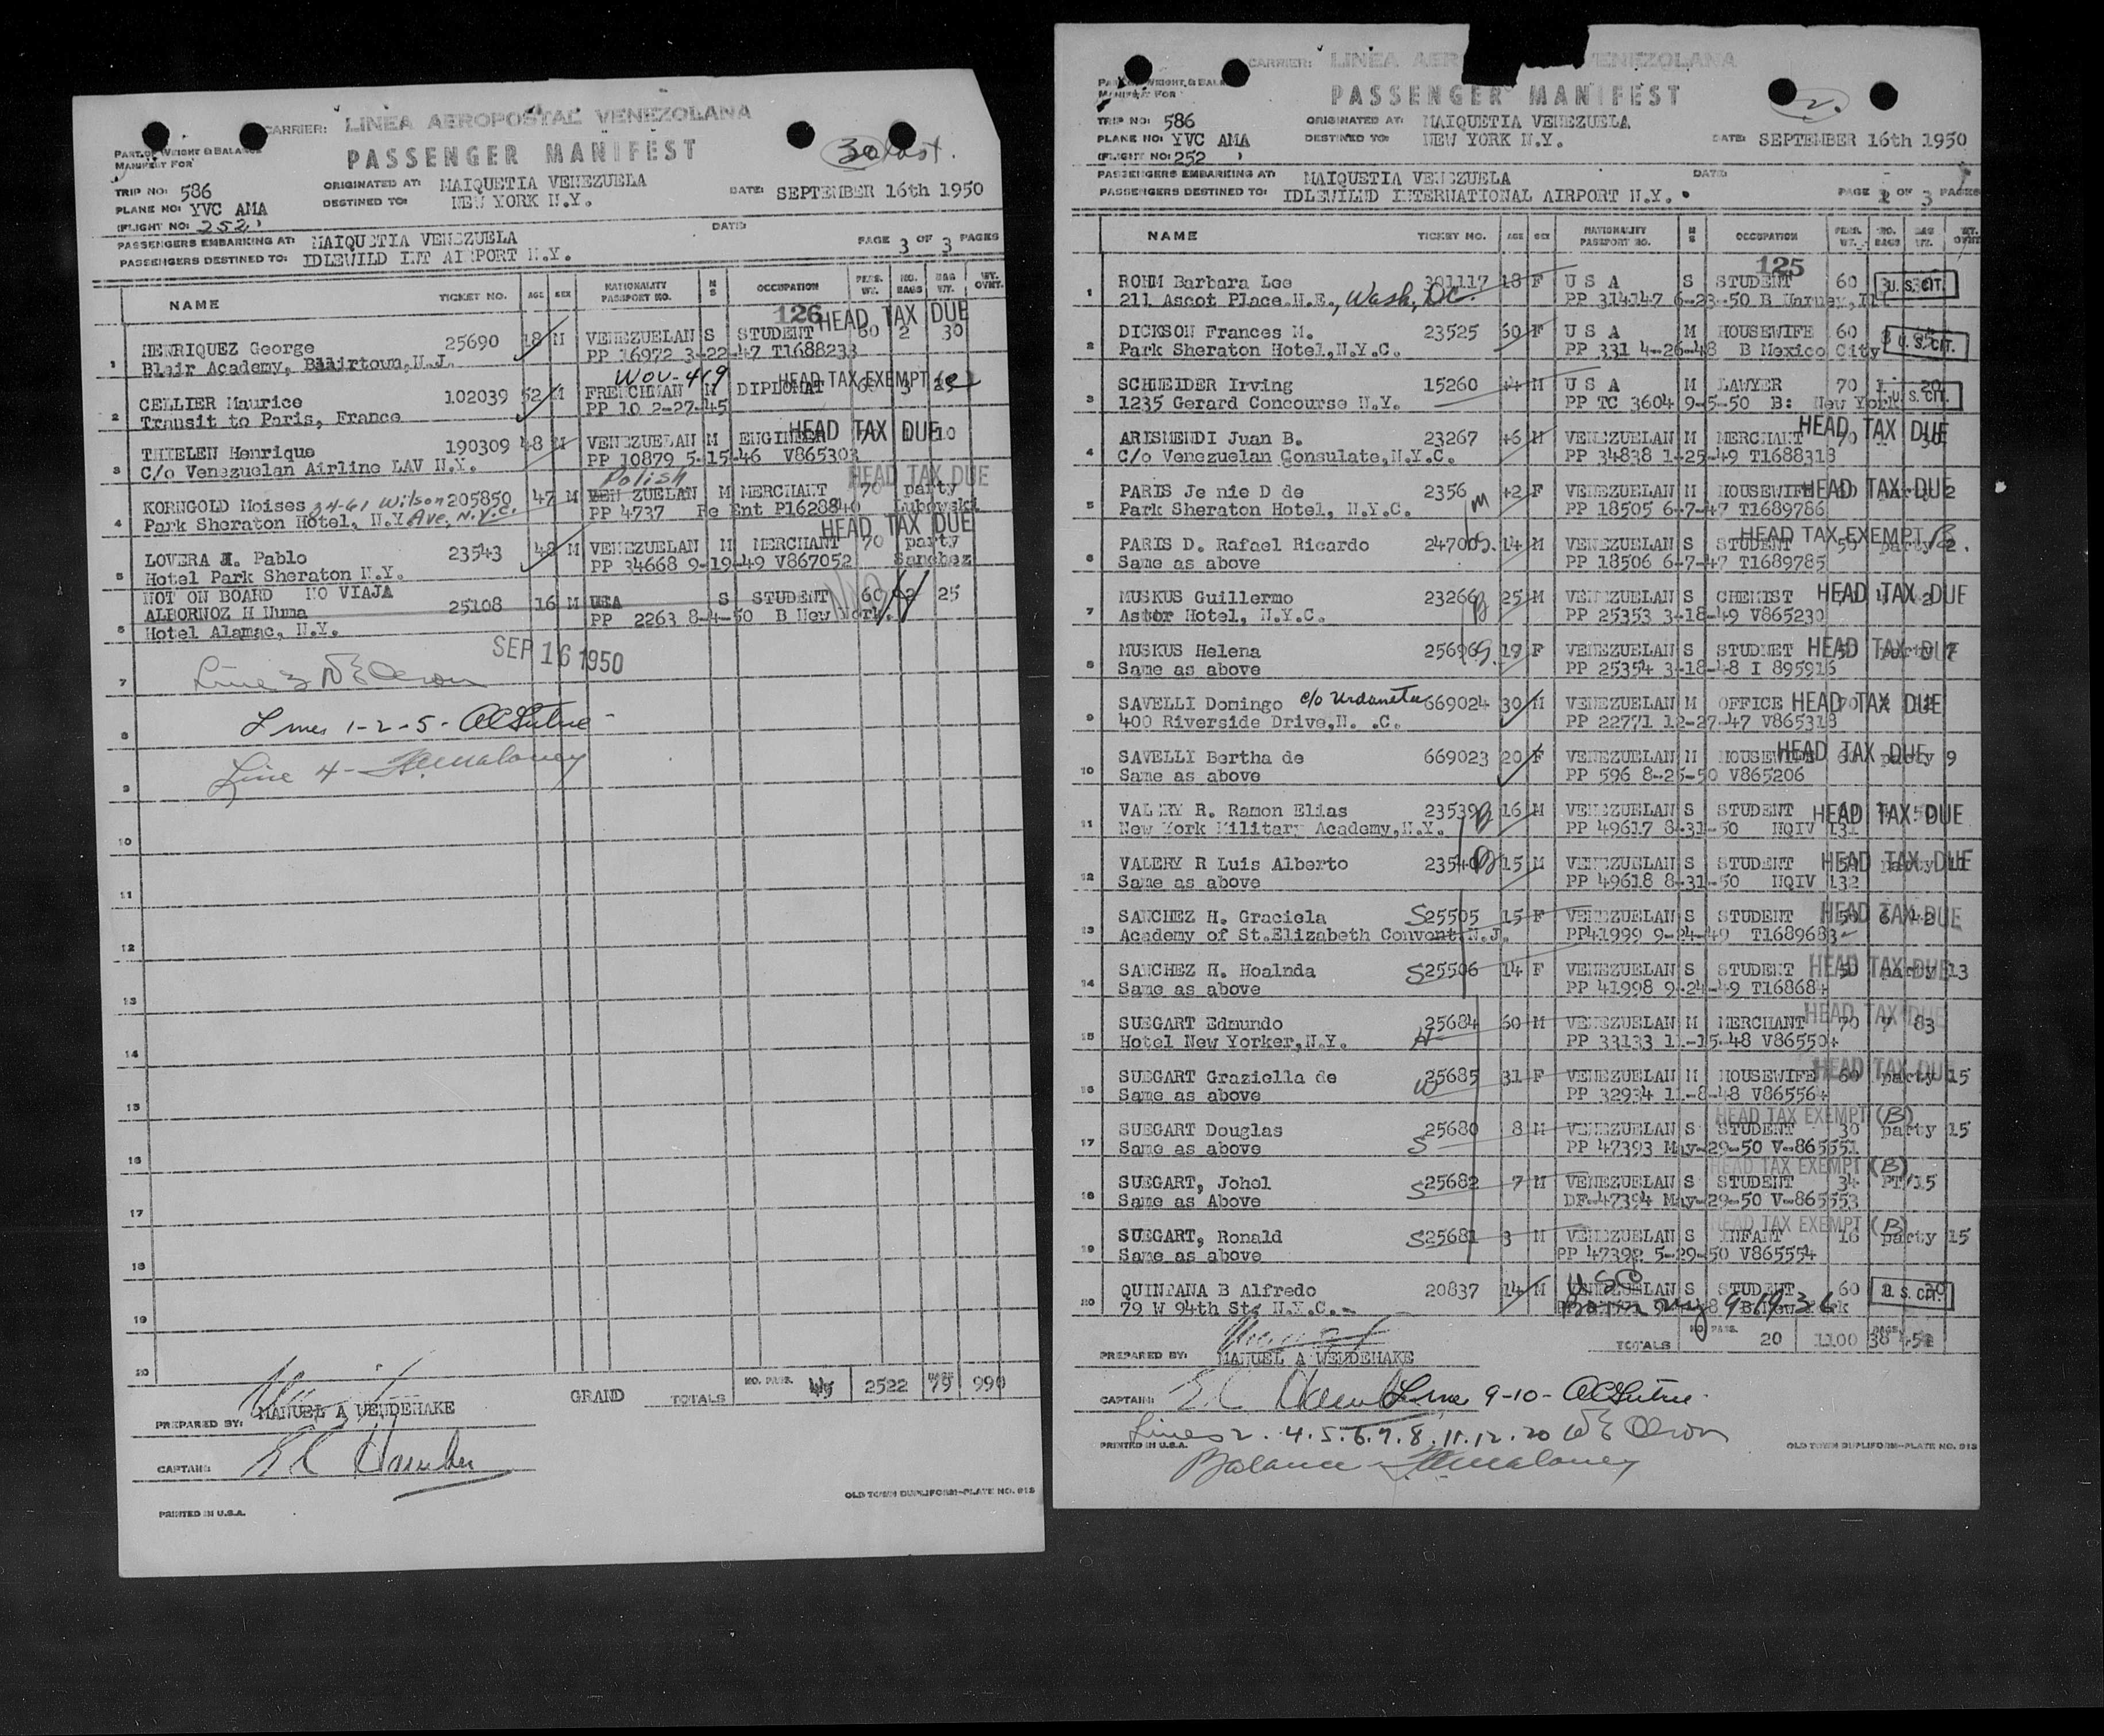 CARRIER: LINEA AEROPOSTAL VENEZOLANA
PART OF WEIGHT & BALANCE
MANIFEST FOR
PASSENGER MANIFEST
TRIP NO: 586
ORIGINATED AT: MAIQUETIA VENEZUELA
DATE: SEPTEMBER 16th 1950
PLANE NO: YVC AMA
DESTINED TO: NEW YORK N.Y.
(FLIGHT NO: 252)
PASSENGERS EMBARKING AT: MAIQUETIA VENEZUELA
DATE:
PAGE 3 OF 3 PAGES
PASSENGERS DESTINED TO: IDLEWILD INT AIRPORT N.Y.
NAME TICKET NO. AGE SEX NATIONALITY PASSPORT NO. M S OCCUPATION PERS. WT. NO. BAGS BAG WT. WT. OVNT.
126
HEAD TAX DUE
1 HENRIQUEZ George 25690 18 M VENEZUELAN S STUDENT 60 2 30
Blair Academy, Blairtown, N.J. PP 16972 3-22-47 T1688233
HEAD TAX EXEMPT
2 CELLIER Maurice 102039 52 M FRENCHMAN M DIPLOMAT 3
Transit to Paris, France PP 10 2-27-45
HEAD TAX DUE
3 THIELEN Henrique 190309 48 M VENEZUELAN M ENGINEER 10
C/o Venezuelan Airline LAV N.Y. PP 10879 5-15-46 V865303
Polish
HEAD TAX DUE
4 KORNGOLD Moises 34-61 Wilson 205850 47 M VEN ZUELAN M MERCHANT 70 party
Park Sheraton Hotel, N.Y Ave, N.Y.C. PP 4737 Re Ent P1628840 Lubowski
HEAD TAX DUE
5 LOVERA H. Pablo 23543 48 M VENEZUELAN M MERCHANT 70 party
Hotel Park Sheraton N.Y. PP 34668 9-19-49 V867052 Sanchez
NOT ON BOARD NO VIAJA
6 ALBORNOZ H Numa 25108 16 M USA S STUDENT 60 2 25
Hotel Alamac, N.Y. PP 2263 8-4-50 B New York.
SEP 16 1950
7 Line 3
8 Lines 1-2-5-
Line 4 - Maloney
9
10
11
12
13
14
15
16
17
18
19
20
GRAND TOTALS NO. PASS. 45 2522 BAGS 79 990
PREPARED BY: MANUEL A WENDEHAKE
CAPTAIN:
OLD TOWN DUPLIFORM-PLATE NO. 913
PRINTED IN U.S.A.
CARRIER: LINEA AER VENEZOLANA
PASSENGER MANIFEST
2.
TRIP NO: 586
ORIGINATED AT: MAIQUETIA VENEZUELA
PLANE NO: YVC AMA
DESTINED TO: NEW YORK N.Y.
DATE: SEPTEMBER 16th 1950
(FLIGHT NO: 252)
PASSENGERS EMBARKING AT: MAIQUETIA VENEZUELA
DATE:
PASSENGERS DESTINED TO: IDLEWILND INTERNATIONAL AIRPORT N.Y.
PAGE 2 OF 3 PAGES
NAME TICKET NO. AGE SEX NATIONALITY PASSPORT NO. M S OCCUPATION PERS. WT. NO. BAGS BAG WT. WT. OVNT.
125
1 ROHM Barbara Lee 301117 18 F U S A S STUDENT 60 U. S. CIT.
211 Ascot Place.N.E., Wash, DC. PP 314147 6-23-50 B
2 DICKSON Frances M. 23525 60 F U S A M HOUSEWIFE 60 U. S. CIT.
Park Sheraton Hotel,N.Y.C. PP 331 4-26-48 B Mexico City
3 SCHNEIDER Irving 15260 44 M U S A M LAWYER 70 1 20 U. S. CIT.
1235 Gerard Concourse N.Y. PP TC 3604 9-5-50 B: New York
HEAD TAX DUE
4 ARISMENDI Juan B. 23267 46 M VENEZUELAN M MERCHANT 70
C/o Venezuelan Consulate,N.Y.C. PP 34838 1-25-49 T1688313
HEAD TAX DUE
5 PARIS Je nie D de 2356 42 F VENEZUELAN M HOUSEWIFE 2
Park Sheraton Hotel, N.Y.C. PP 18505 6-7-47 T1689786
HEAD TAX EXEMPT B
6 PARIS D. Rafael Ricardo 2470 14 M VENEZUELAN S STUDENT 50 party 2.
Same as above PP 18506 6-7-47 T1689785
HEAD TAX DUE
7 MUSKUS Guillermo 23266 25 M VENEZUELAN S CHEMIST
Astor Hotel, N.Y.C. PP 25353 3-18-49 V865230
HEAD TAX DUE
8 MUSKUS Helena 25696 19 F VENEZUELAN S STUDNET 7
Same as above PP 25354 3-18-48 I 895916
HEAD TAX DUE
9 SAVELLI Domingo c/o Urdaneta 669024 30 M VENEZUELAN M OFFICE 70
400 Riverside Drive,N. .C. PP 22771 12-27-47 V865318
HEAD TAX DUE
10 SAVELLI Bertha de 669023 20 F VENEZUELAN M HOUSEWIFE party 9
Same as above PP 596 8-25-50 V865206
HEAD TAX DUE
11 VALERY R. Ramon Elias 23539 16 M VENEZUELAN S STUDENT
New York Military Academy,N.Y. PP 49617 8-31-50 NQIV 131
HEAD TAX DUE
12 VALERY R Luis Alberto 23540 15 M VENEZUELAN S STUDENT party 11
Same as above PP 49618 8-31-50 NQIV 132
HEAD TAX DUE
13 SANCHEZ H. Graciela S25505 15 F VENEZUELAN S STUDENT 50 6 42
Academy of St.Elizabeth Convent,N.J. PP41999 9-24-49 T1689683
HEAD TAX DUE
14 SANCHEZ H. Hoalnda S25506 14 F VENEZUELAN S STUDENT 50 party 13
Same as above PP 41998 9-24-49 T168684
HEAD TAX DUE
15 SUEGART Edmundo 25684 60 M VENEZUELAN M MERCHANT 70 7 83
Hotel New Yorker,N.Y. H PP 33133 11-15-48 V865504
HEAD TAX DUE
16 SUEGART Graziella de 25685 31 F VENEZUELAN M HOUSEWIFE 60 party 15
Same as above W PP 32934 11-8-48 V865564
HEAD TAX EXEMPT (B)
17 SUEGART Douglas 25680 8 M VENEZUELAN S STUDENT 30 party 15
Same as above S PP 47393 May-29-50 V-865551
HEAD TAX EXEMPT (B)
18 SUEGART, Johel S25682 7 M VENEZUELAN S STUDENT 34 PT/15
Same as Above DF-47394 May-29-50 V-865553
HEAD TAX EXEMPT (B)
19 SUEGART, Ronald S25681 3 M VENEZUELAN S INFANT 16 party 15
Same as above PP 47392 5-29-50 V865554
20 QUINTANA B Alfredo 20837 14 M VENEZUELAN S STUDENT 60 U. S. CIT.
79 W 94th St, N.Y.C.- Born
TOTALS NO. PASS. 20 1100 BAGS 38 452
PREPARED BY: MANUEL A WENDEHAKE
CAPTAIN: Lines 9-10-
Lines 2. 4.5.6.7.8.11.12.20
PRINTED IN U.S.A.
OLD TOWN DUPLIFORM-PLATE NO. 913
Balance - Maloney